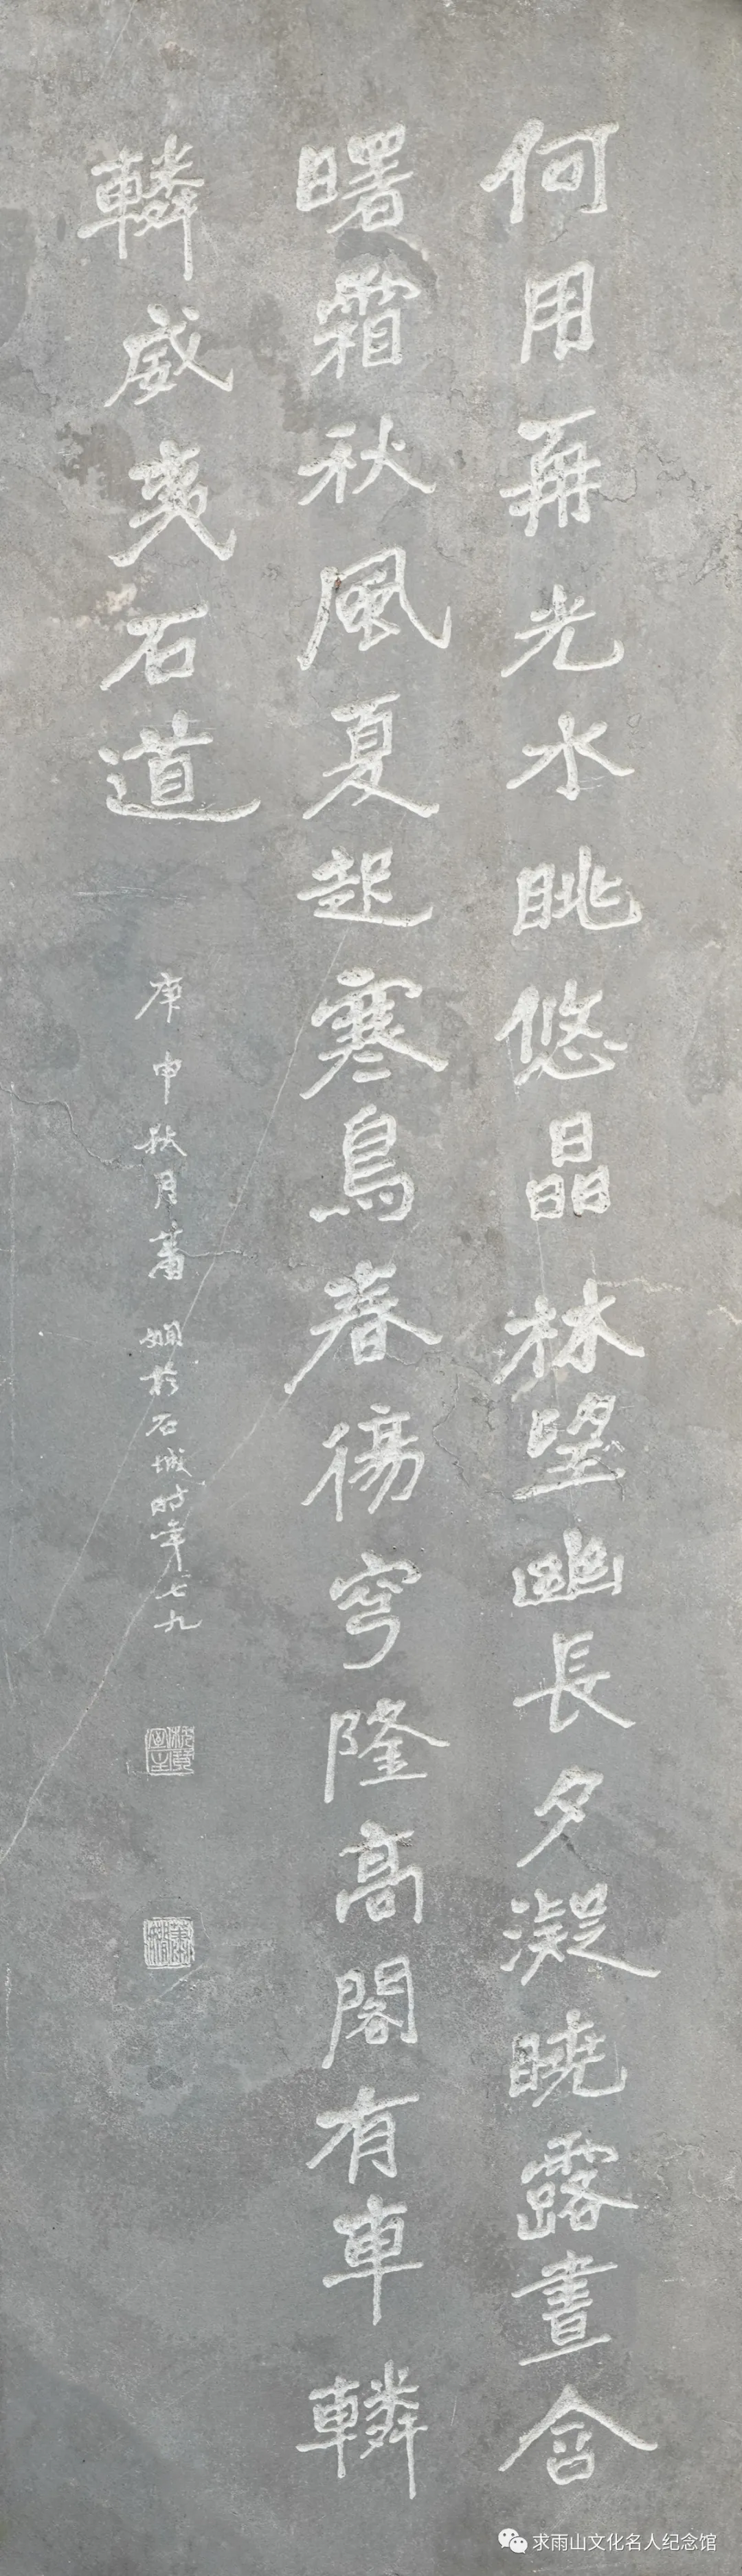 何用再光水眺悠晶林望幽長夕凝曉露晝含
曙霜秋風夏起寒鳥春傷穹隆高閣有車轔
轔威夷石道
庚申秋月蕭嫻於石城时年七九
枕琴室主
蕭嫻
求雨山文化名人纪念馆